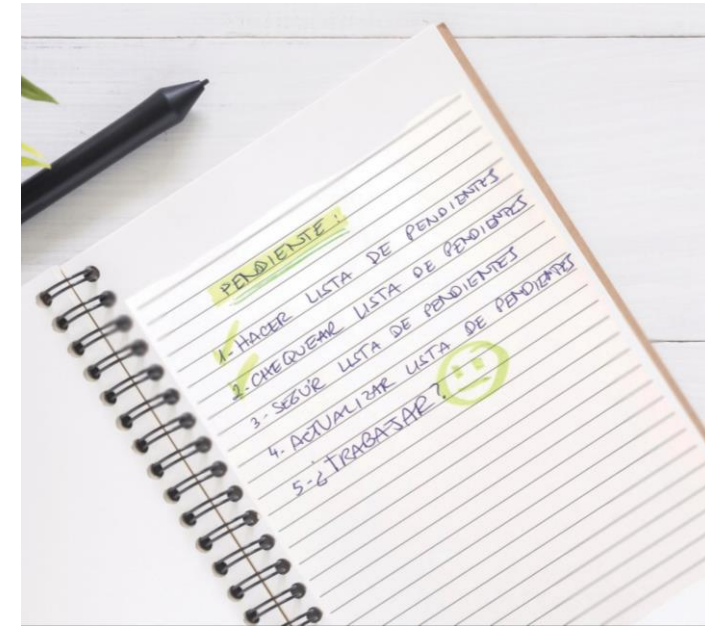 PENDIENTE:
1- HACER LISTA DE PENDIENTES
2- CHEQUEAR LISTA DE PENDIENTES
3- SEGUIR LISTA DE PENDIENTES
4. ACTUALIZAR LISTA DE PENDIENTES
5-¿TRABAJAR?